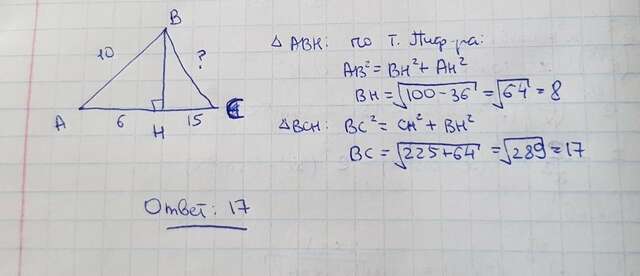 B
10
?
A
6
H
15
C
Δ ABH: по т. Пиф-ра:
AB² = BH² + AH²
BH = √100 - 36 = √64 = 8
ΔBCH: BC² = CH² + BH²
BC = √225+64 = √289 = 17
Ответ: 17